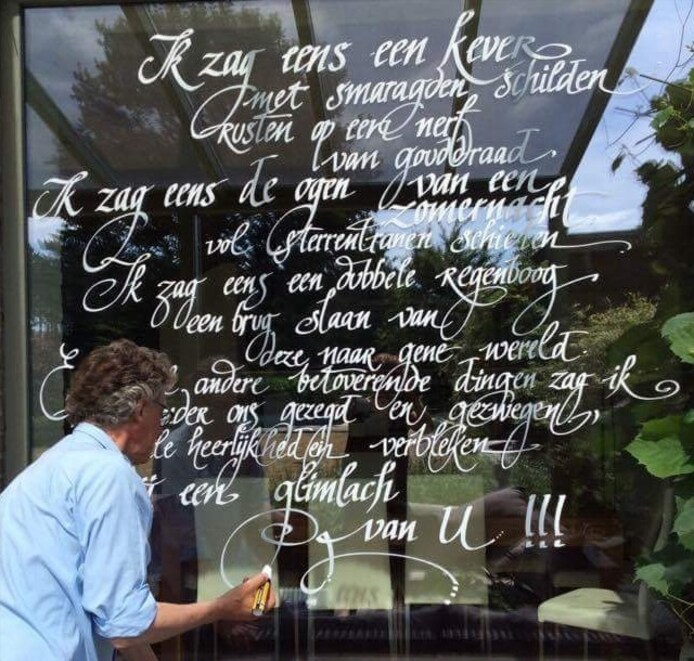 Ik zag eens een kever
met smaragden schilden
rusten op een nerf
van gouddraad.
Ik zag eens de ogen van een
zomernacht
vol sterrentranen schieten
Ik zag eens een dubbele regenboog
een brug slaan van
deze naar gene wereld.
andere betoverende dingen zag ik
ons gezegd en gezwegen,
heerlijkheden verbleken
een glimlach
van U !!!